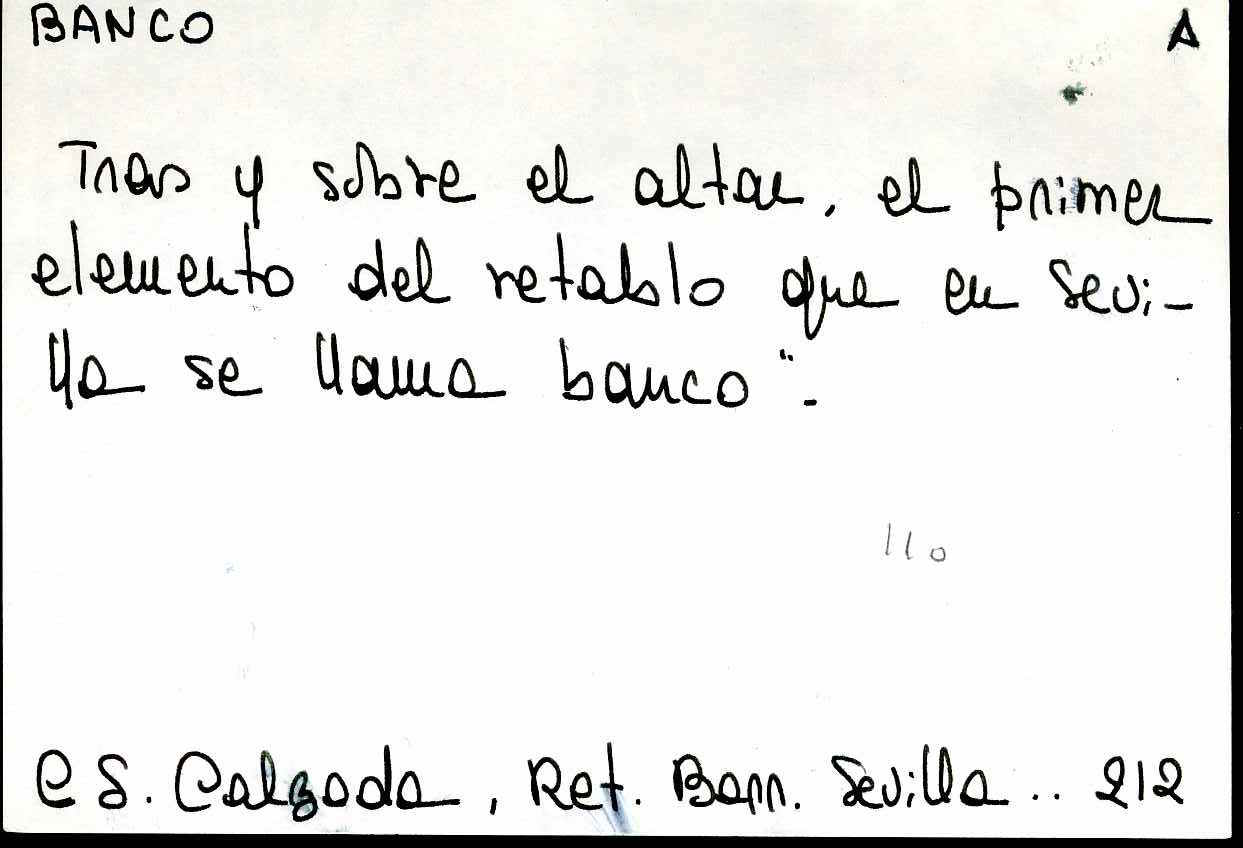 BANCO A
Tras y sobre el altar, el primer
elemento del retablo que en Sevi-
lla se llama banco".
110
C S. Calzada, Ret. Barr. Sevilla .. 212